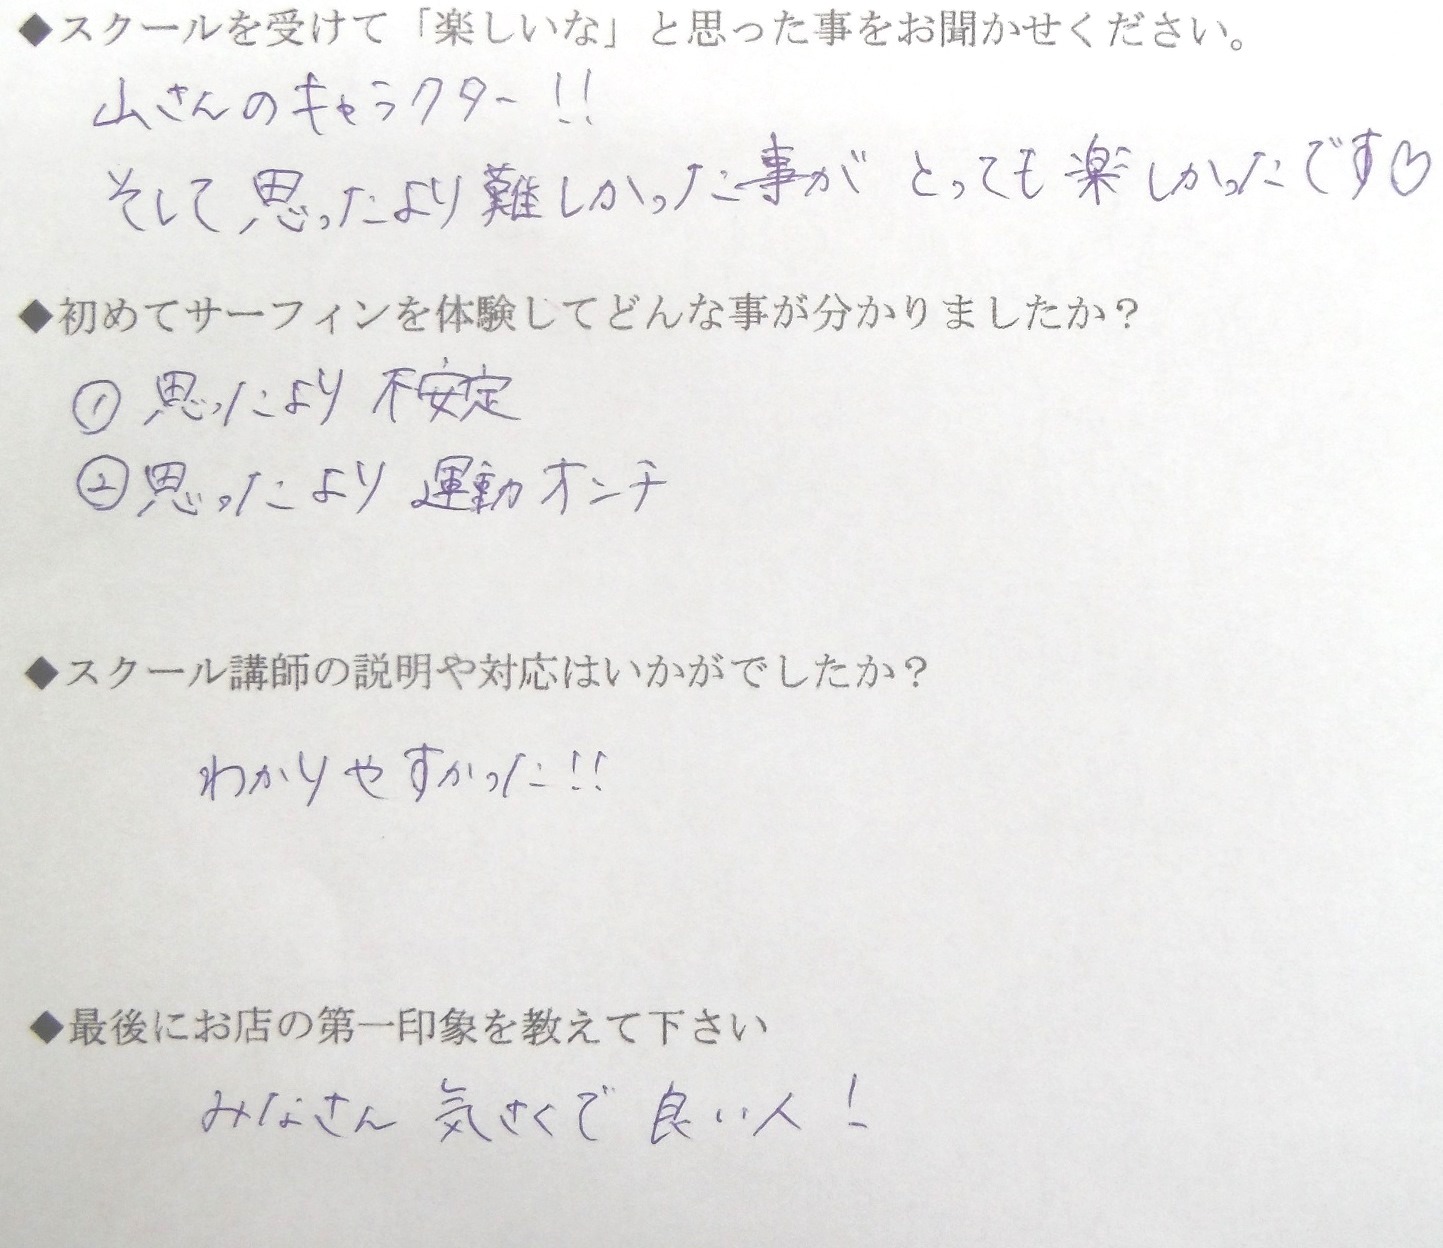 ◆スクールを受けて「楽しいな」と思った事をお聞かせください。
山さんのキャラクター!!
そして思ったより難しかった事がとっても楽しかったです♡
◆初めてサーフィンを体験してどんな事が分かりましたか？
① 思ったより 不安定
② 思ったより 運動オンチ
◆スクール講師の説明や対応はいかがでしたか？
わかりやすかった!!
◆最後にお店の第一印象を教えて下さい
みなさん 気さくで 良い人！